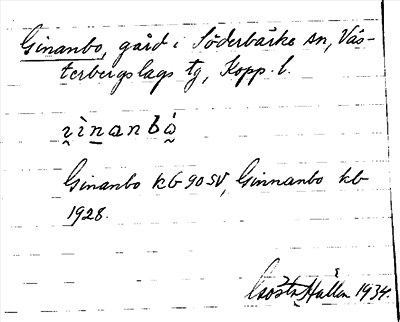 Ginanbo, gård i Söderbärke sn, Väs-
terbergslags tg, Kopp. l.
ɪ̀nanbó
Ginanbo kb 90 SV, Ginnanbo kb
1928.
Gösta Hallen 1934.